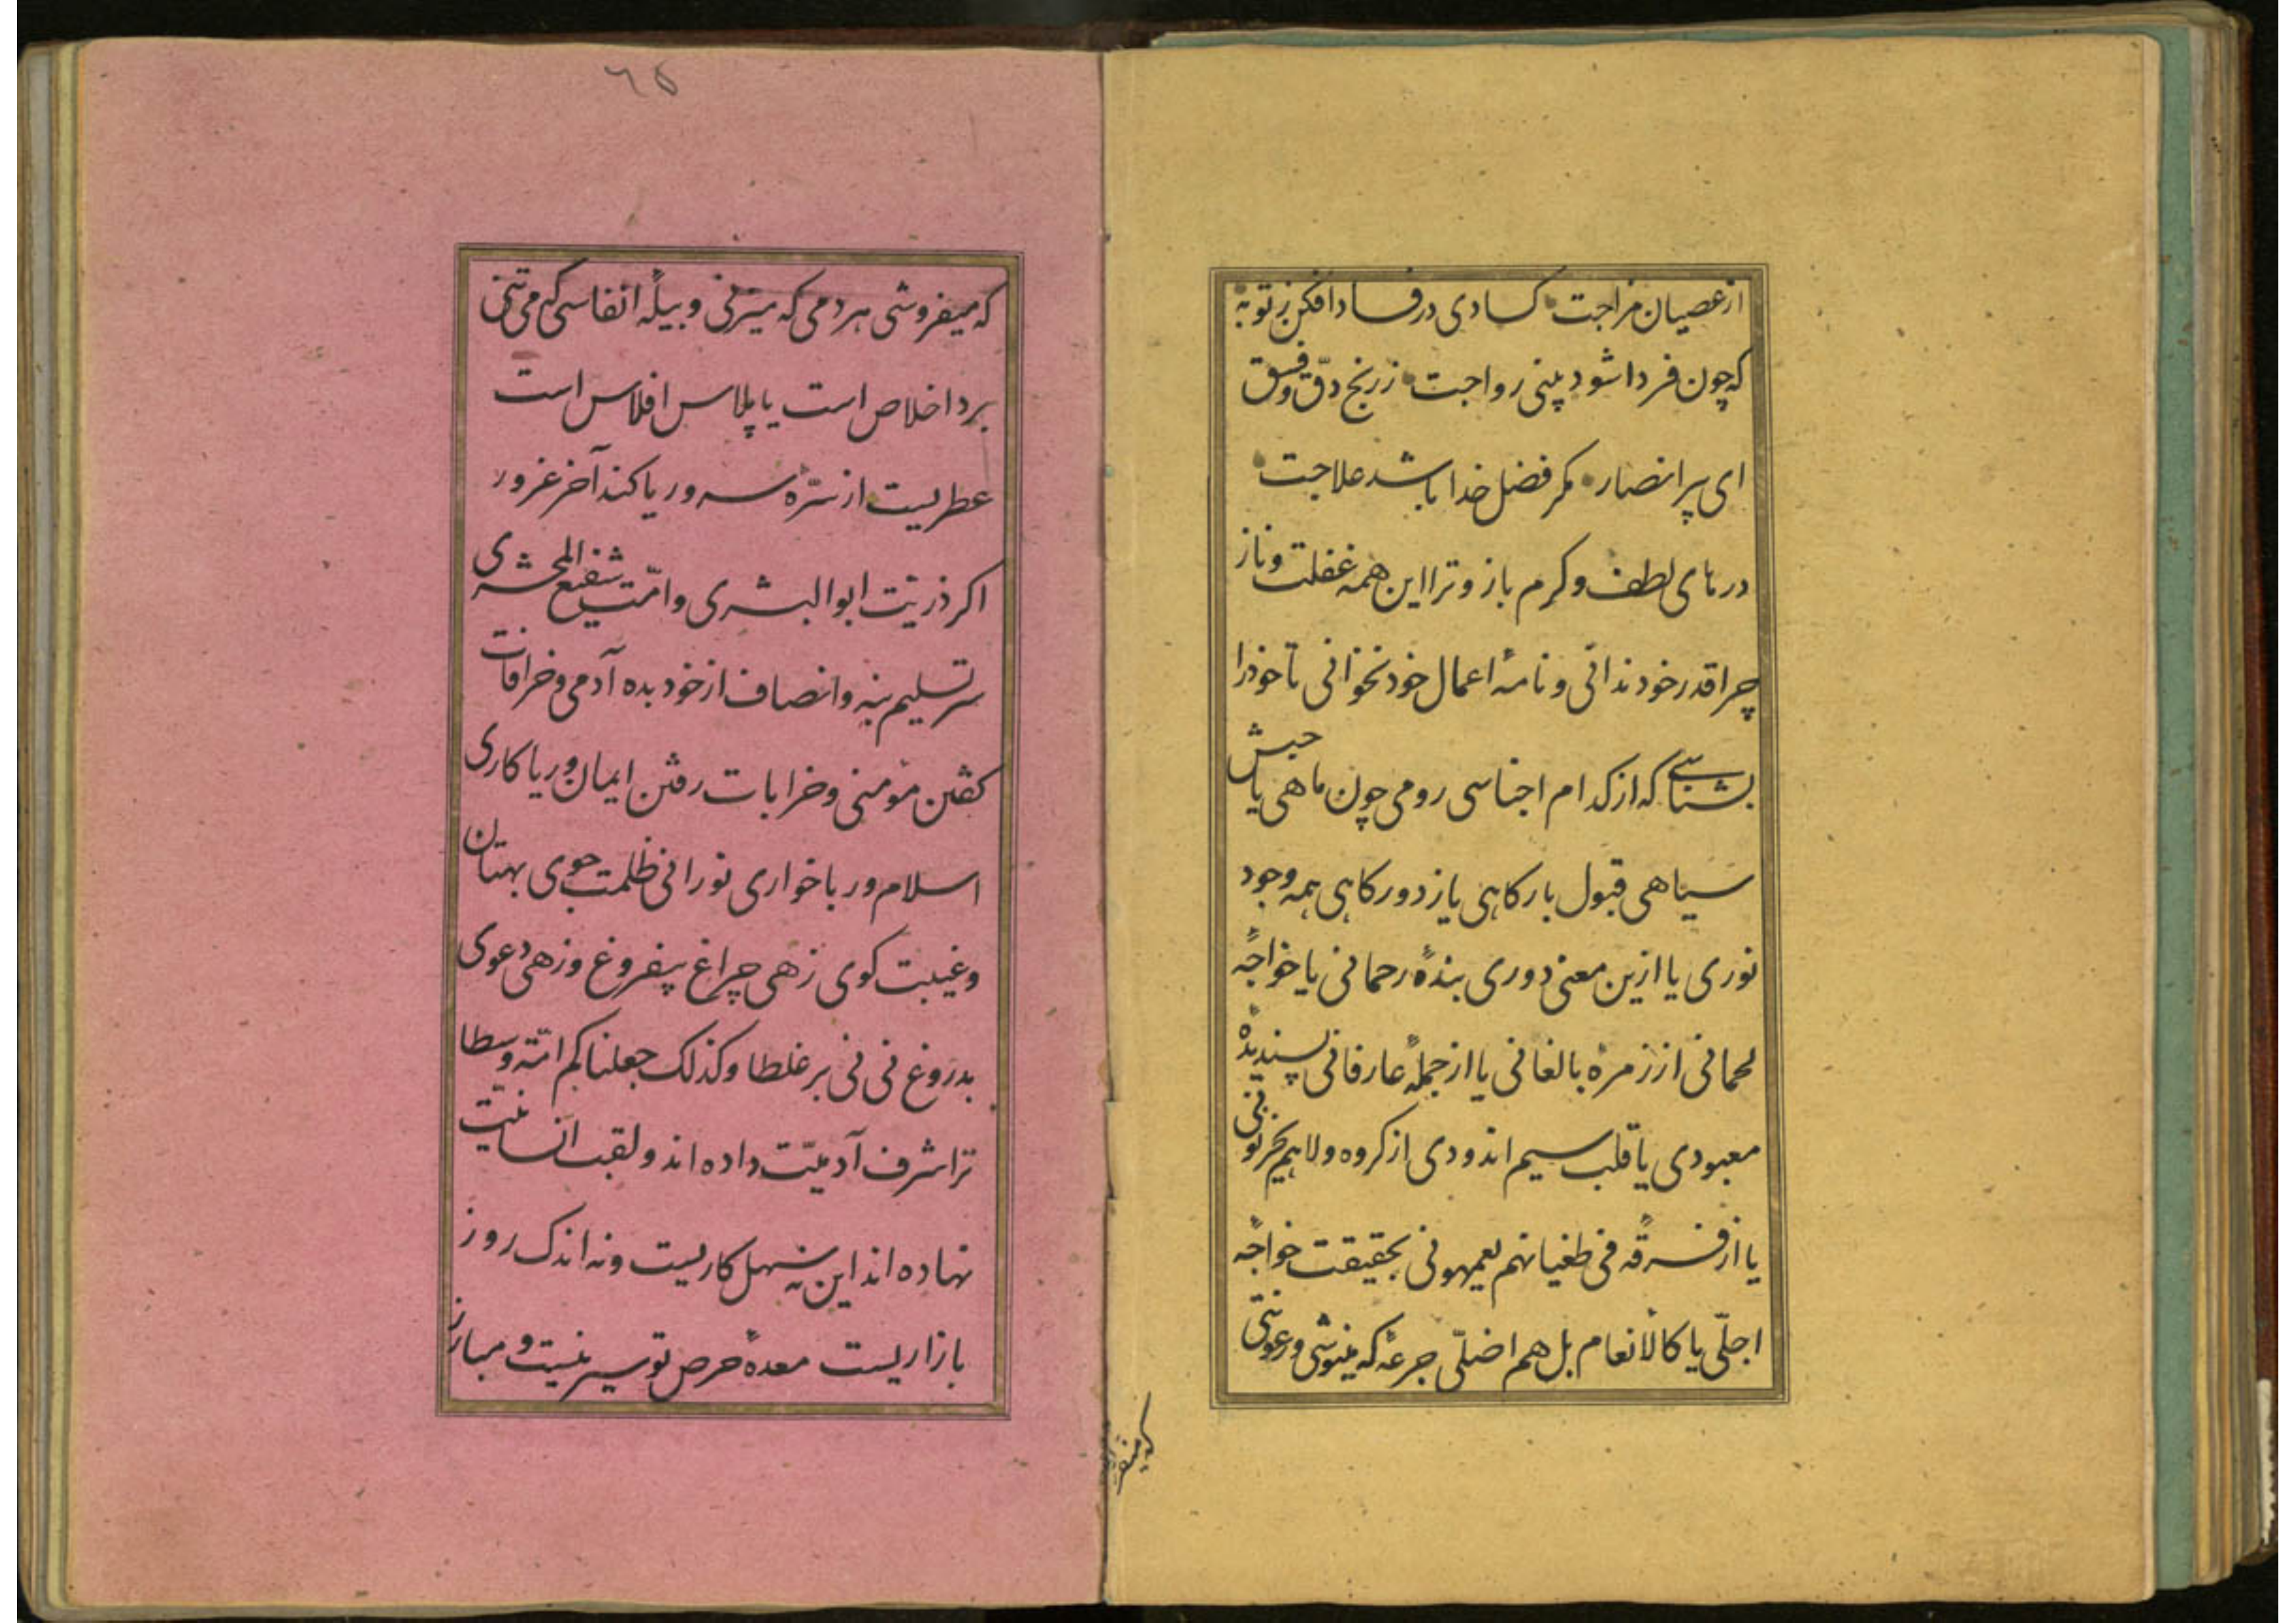 از عصیان مزاجت کسادی در فساد افکن ز توبه
که چون فردا شود بینی رواجت ز رنج دقّ و فسق
ای پیر انصار مکر فضل خدا باشد علاجت
درهای لطف و کرم باز و ترا این همه غفلت و ناز
چرا قدر خود ندانی و نامهٔ اعمال خود نخوانی تا خود را
بشناسی که از کدام اجناسی رومی چون ماهی یا حبش
سیاهی قبول بارکاهی یا رد درکاهی همه وجود
نوری یا ازین معنی دوری بندهٔ رحمانی یا خواجهٔ
لحمانی از زمرهٔ بالغانی یا از جملهٔ عارفانی پسندیدهٔ
معبودی یا قلب سیم اندودی از کروه ولاهم یحزنونی
یا از فرقه فی طغیانهم یعمهونی بحقیقت خواجهٔ
اجلّی یا کالانعام بل هم اضلّی جرعهٔ که مینوشی و رعونتی
که میفروشی هر دمی که میزنی و بیلهٔ انفاسی که می تنی
برد اخلاص است یا پلاس افلاس است
عطریست از سرّهٔ سرور یا کند آخر غرور
اکر ذریّت ابو البشری و امّت شفیع المحشری
سر تسلیم بنه و انصاف از خود بده آدمی و خرافات
کفتن مؤمنی و خرابات رفتن ایمان و ریا کاری
اسلام و ربا خواری نورانی ظلمت جوی بهتان
و غیبت کوی زهی چراغ بیفروغ و زهی دعوی
بدروغ نی نی بر غلطا و کذلک جعلناکم امّة وسطا
ترا شرف آدمیّت داده اند و لقب انسانیّت
نهاده اند این نه سهل کاریست و نه اندک روز
بازاریست معدهٔ حرص تو سیر نیست و مبارز
که میفر
٦٥